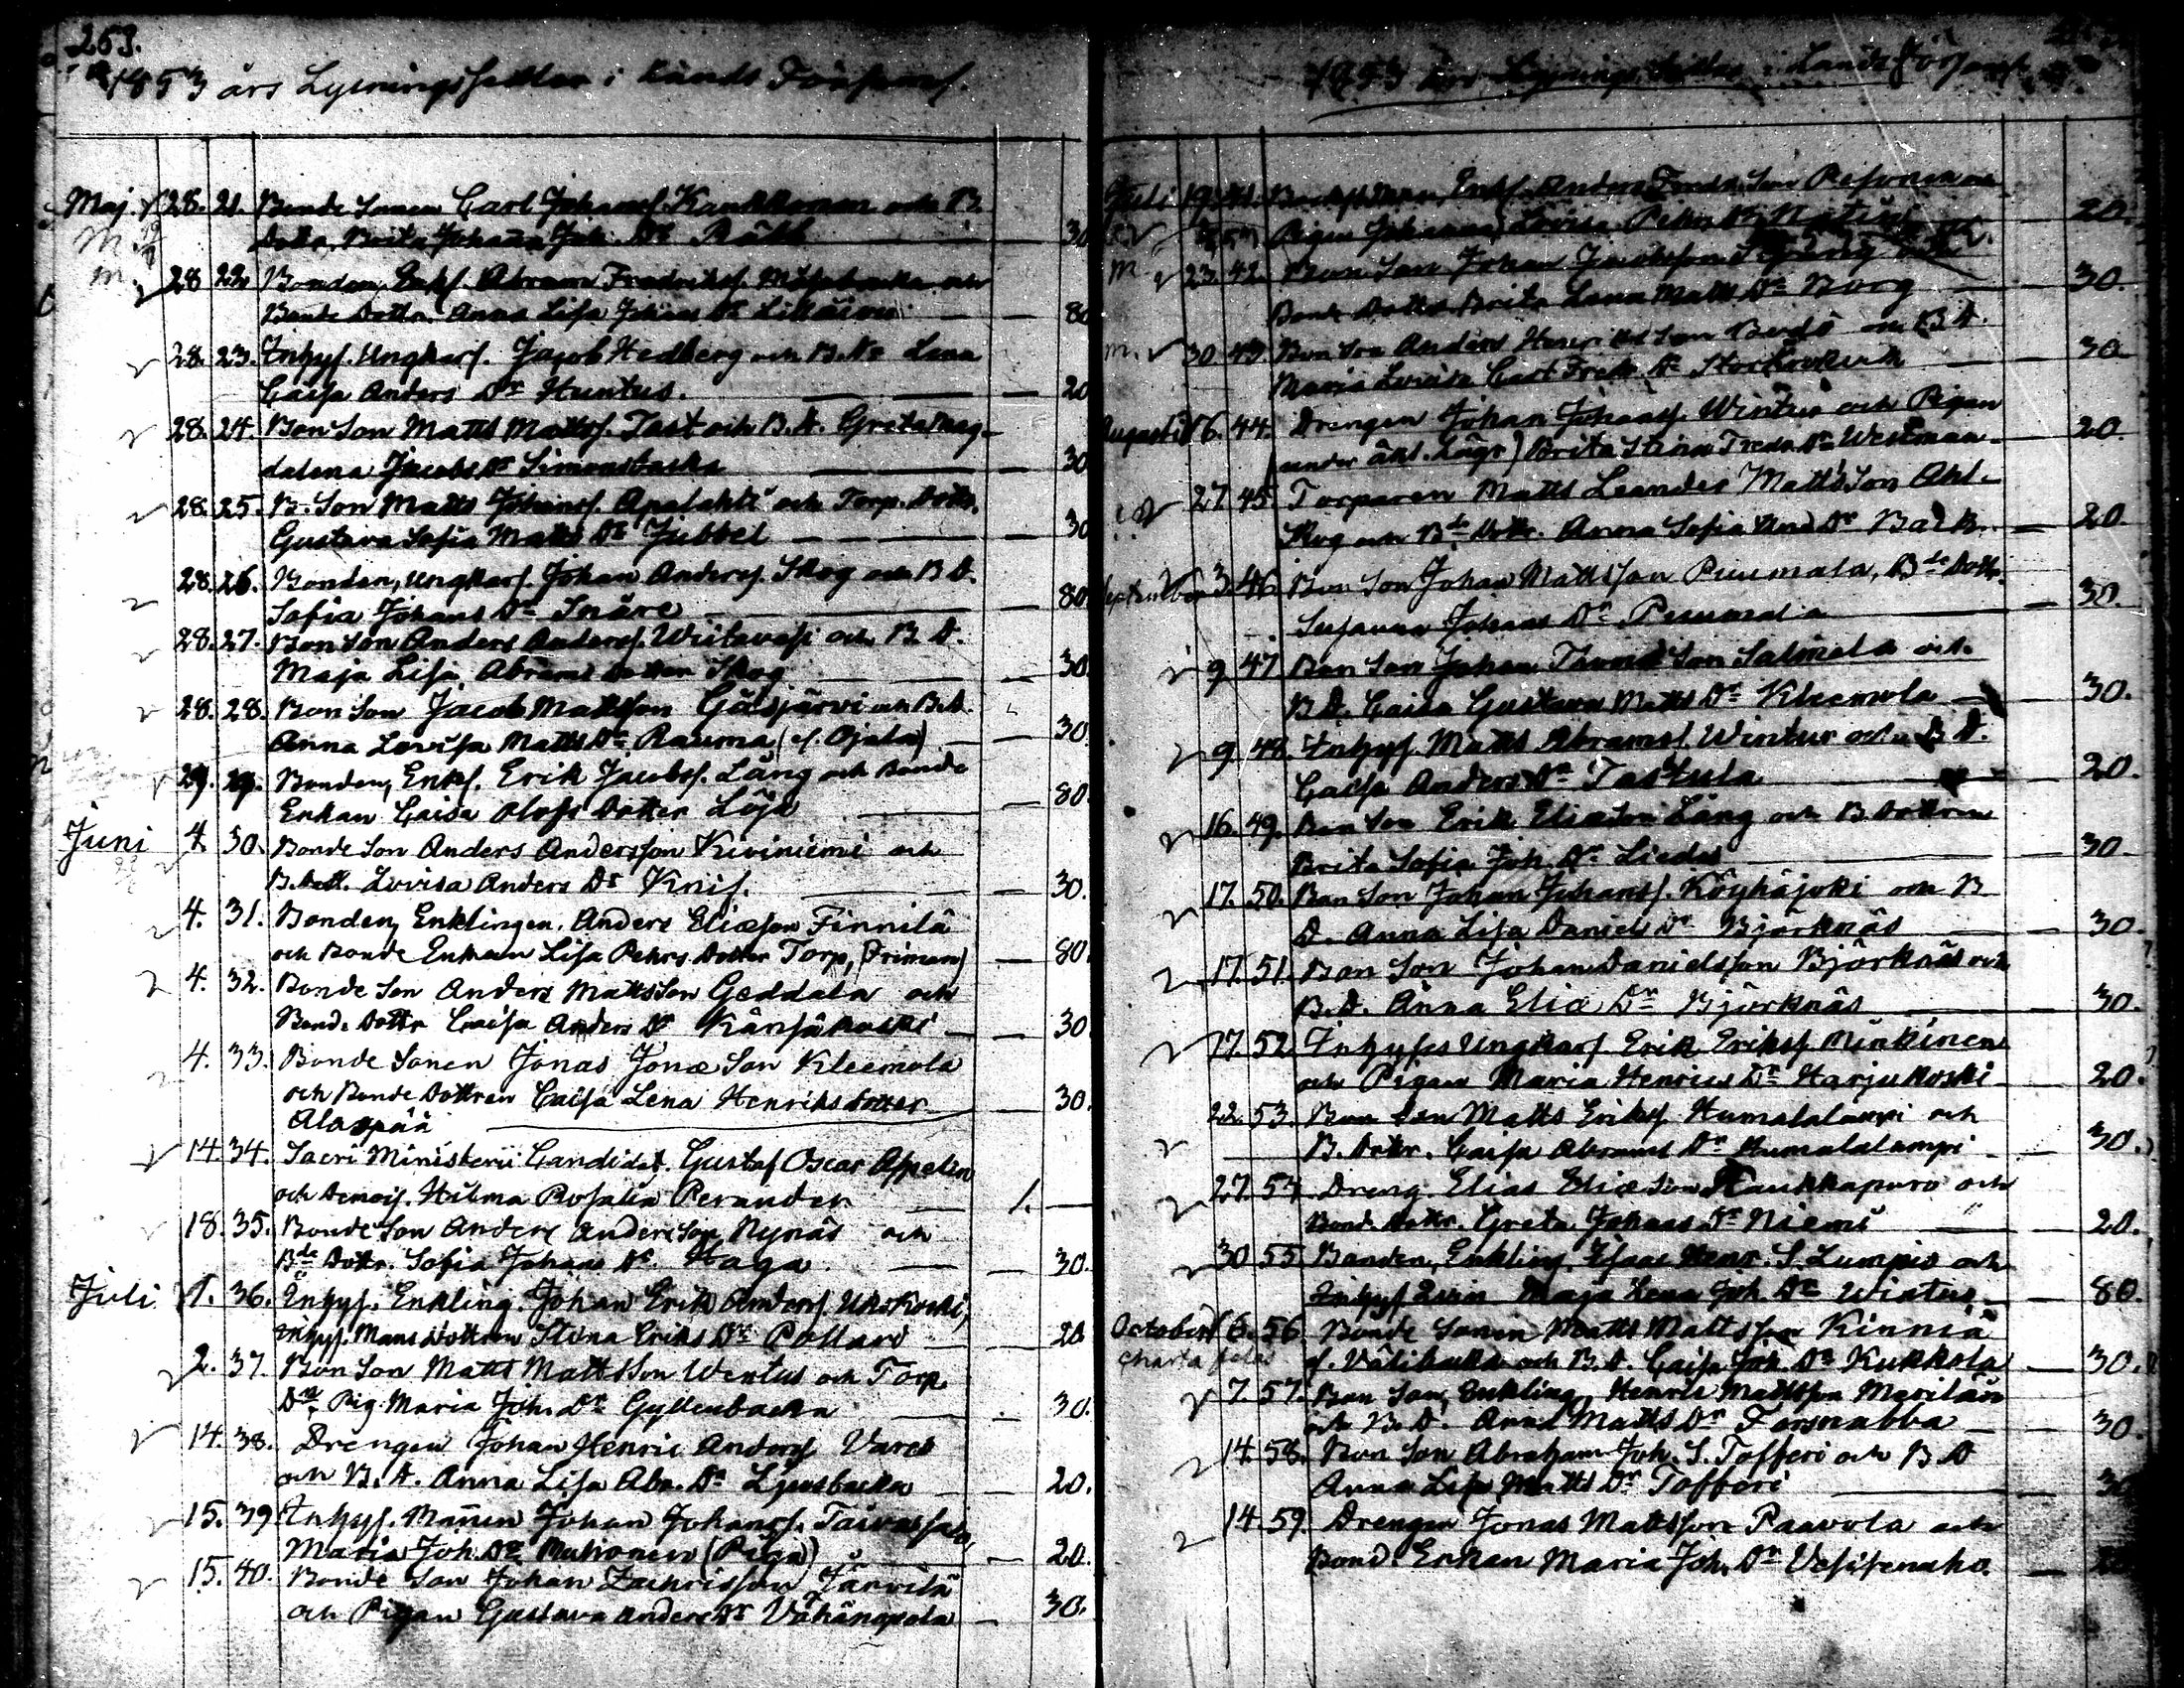 253.
1853 års Lysningssedlar i Lands Församl.
Maj. 28. 21. Bonde Sonen Carl Johansf. Kaukkonen och B.
M. Dottr. Brita Johanna Joh. Dr 30
m. 28 22 Bonden, Enkl. Abram Fredriksf. och
Bonde Dottr. Anna Lisa Johans Dr 80
28. 23. Inhys. Ungkarl. Jacob Hedberg och B. Dr Lena
Caisa Anders Dr Huntus. 20
28. 24. Bon Son Matts Mattsf. Tast och B. D. Greta Mag-
dalena Jacobs Dr Simonsbacka 30
28. 25. B. Son Matts Johansf. Apalahti och Torp. Dottr.
Gustava Sofia Matts Dr Jubbel 30
28. 26. Bonden, Ungkarl. Johan Andersf. Skog och B D.
Sofia Johans Dr Snåre 80
28. 27. Bon Son Anders Andersf. Wiitavasi och B. D.
Maja Lisa Abrams Dotter Skog 30
28. 28. Bon Son Jacob Mattsson Gäsjärvi och B. D.
Anna Lovisa Matts Dr Rauma, (el. Ojala) 30
29. 29. Bonden, Enkl. Erik Jacobsf. Lång och Bonde
Enkan Caisa Olofs Dotter Löjo 80.
Juni 4. 30. Bonde Son Anders Andersson Kiviniemi och
B. Dott. Lovisa Anders Dr Knif. 30.
4. 31. Bonden, Enklingen. Anders Eliæson Finnilä
och Bonde Enkan Lisa Pehrs Dotter Torp, (Friman) 80
4. 32. Bonde Son Anders Mattsson Geddala och
Bonde Dottr Caisa Anders Dr Känsäkoski 30
4. 33. Bonde Sonen Jonas Jonæ Son Kleemola
och Bonde Dottren Caisa Lena Henriks Dotter 30.
Alaspää
14. 34. Sacri Ministerii Candidat. Gustaf Oscar Appelin
och Demois. Hilma Rosalia Perander 1.
18. 35. Bonde Son Anders Andersson Nynäs och
Bde Dottr. Sofia Johans Dr Haga. 30.
Juli 1. 36. Inhys. Enkling. Johan Erik Andersf. Ukskoski,
Inhys. Mans Dottren Stina Eriks Dr Pollari 20
2. 37. Bon Son Matts Mattsson Wentus och Torp.
Dr. Pig. Maria Joh. Dr Gyllenbacka 30.
14. 38. Drengen Johan Henric Andersf Vares
och B. D. Anna Lisa Abr. Dr Ljusbacka 20.
15. 39 Inhys. Mannen Johan Johansf. Taivassalo,
Maria Joh. Dr (Piga) 20.
15. 40. Bonde Son Johan Zachrisson Järvilä
och Pigan Gustava Anders Dr Vähänapola 30.
1853 års Lysnings Sedlar i Lands Församl.
Juli 19. 41. Enkl. Anders Fredr. Son Pesonen och
Pigan Johanna Lovisa Pehrs Dr 20.
m 23. 42. Bon Son Johan Jacobsson och
Bonde Dottr. Brita Lena Matts Dr Borg 30.
m. 30 43 Bon Son Anders Henriksson och B D.
Maria Lovisa Carl Fredr. Dr Storkorkisch 30.
Augusti 6. 44. Drengen Johan Johansf. Wintus och Pigan
(under äkt. Lägr) Brita Stina Fredr. Dr Westman 20.
27 45 Torparen Matts Leander Mattsson Ahl-
skog och Bde Dottr. Anna Sofia And. Dr Back 20.
September 3. 46. Bon Son Johan Mattsson Puumala, Bde Dottr.
Susanna Johans Dr Puumala 30.
9 47 Bon Son Johan Thomæ Son Salmela och
B D. Caisa Gustava Matts Dr Kleemola 30.
9 48. Inhys. Matts Abramsf. Wintur och B D.
Caisa Anders Dr Tastula 20.
16. 49. Bon Son Erik Eliæson Lång och B. Dottren
Brita Sofia Joh. Dr Liedes 30.
17. 50. Bon Son Johan Johansf. Köyhäjoki och B
D. Anna Lisa Daniels Dr Björknäs 30.
17. 51. Bon Son Johan Danielsson Björknäs och
B. D. Anna Eliæ Dr Björknäs 30.
17. 52. Inhyses Ungkarl Erik Eriksf. Minkinen
och Pigan Maria Henrics Dr Harjukoski 20.
22. 53. Bon Son Matts Eriksf. Humalalampi och
B. Dottr. Caisa Abrams Dr Humalalampi 30.
27. 54 Dreng. Elias Eliæson Haukkapuro och
Bond. Dottr. Greta Johans Dr Niemi 20.
30 55 Bonden, Enkling. Isaac Henr. S. Lumpio och
Inhys Maja Lena Joh. Dr Wintus 80.
October 6. 56 Bonde Sonen Matts Mattsson Kinniä
charta felas el. Välikukka och B. D. Caisa Joh. Dr Kukkola 30.
7. 57. Bon Son, Enkling Henric Mattsson Marilän
och B. D. Anna Matts Dr Forsnabba 30.
14. 58. Bon Son Abraham Joh. S. Tofferi och B D
Anna Lisa Matts Dr Tofferi 30
14 59 Drengen Jonas Mattsson Paavola och
Bond. Enkan Maria Joh. Dr Vesisenaho.